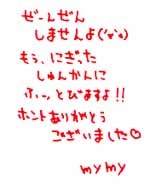 ぜーんぜん
しませんよ(´∀`)
もぅ、にぎった
しゅんかんに
ふっー、とびますよ!!
ホントありがとう
ございました♡
mymy